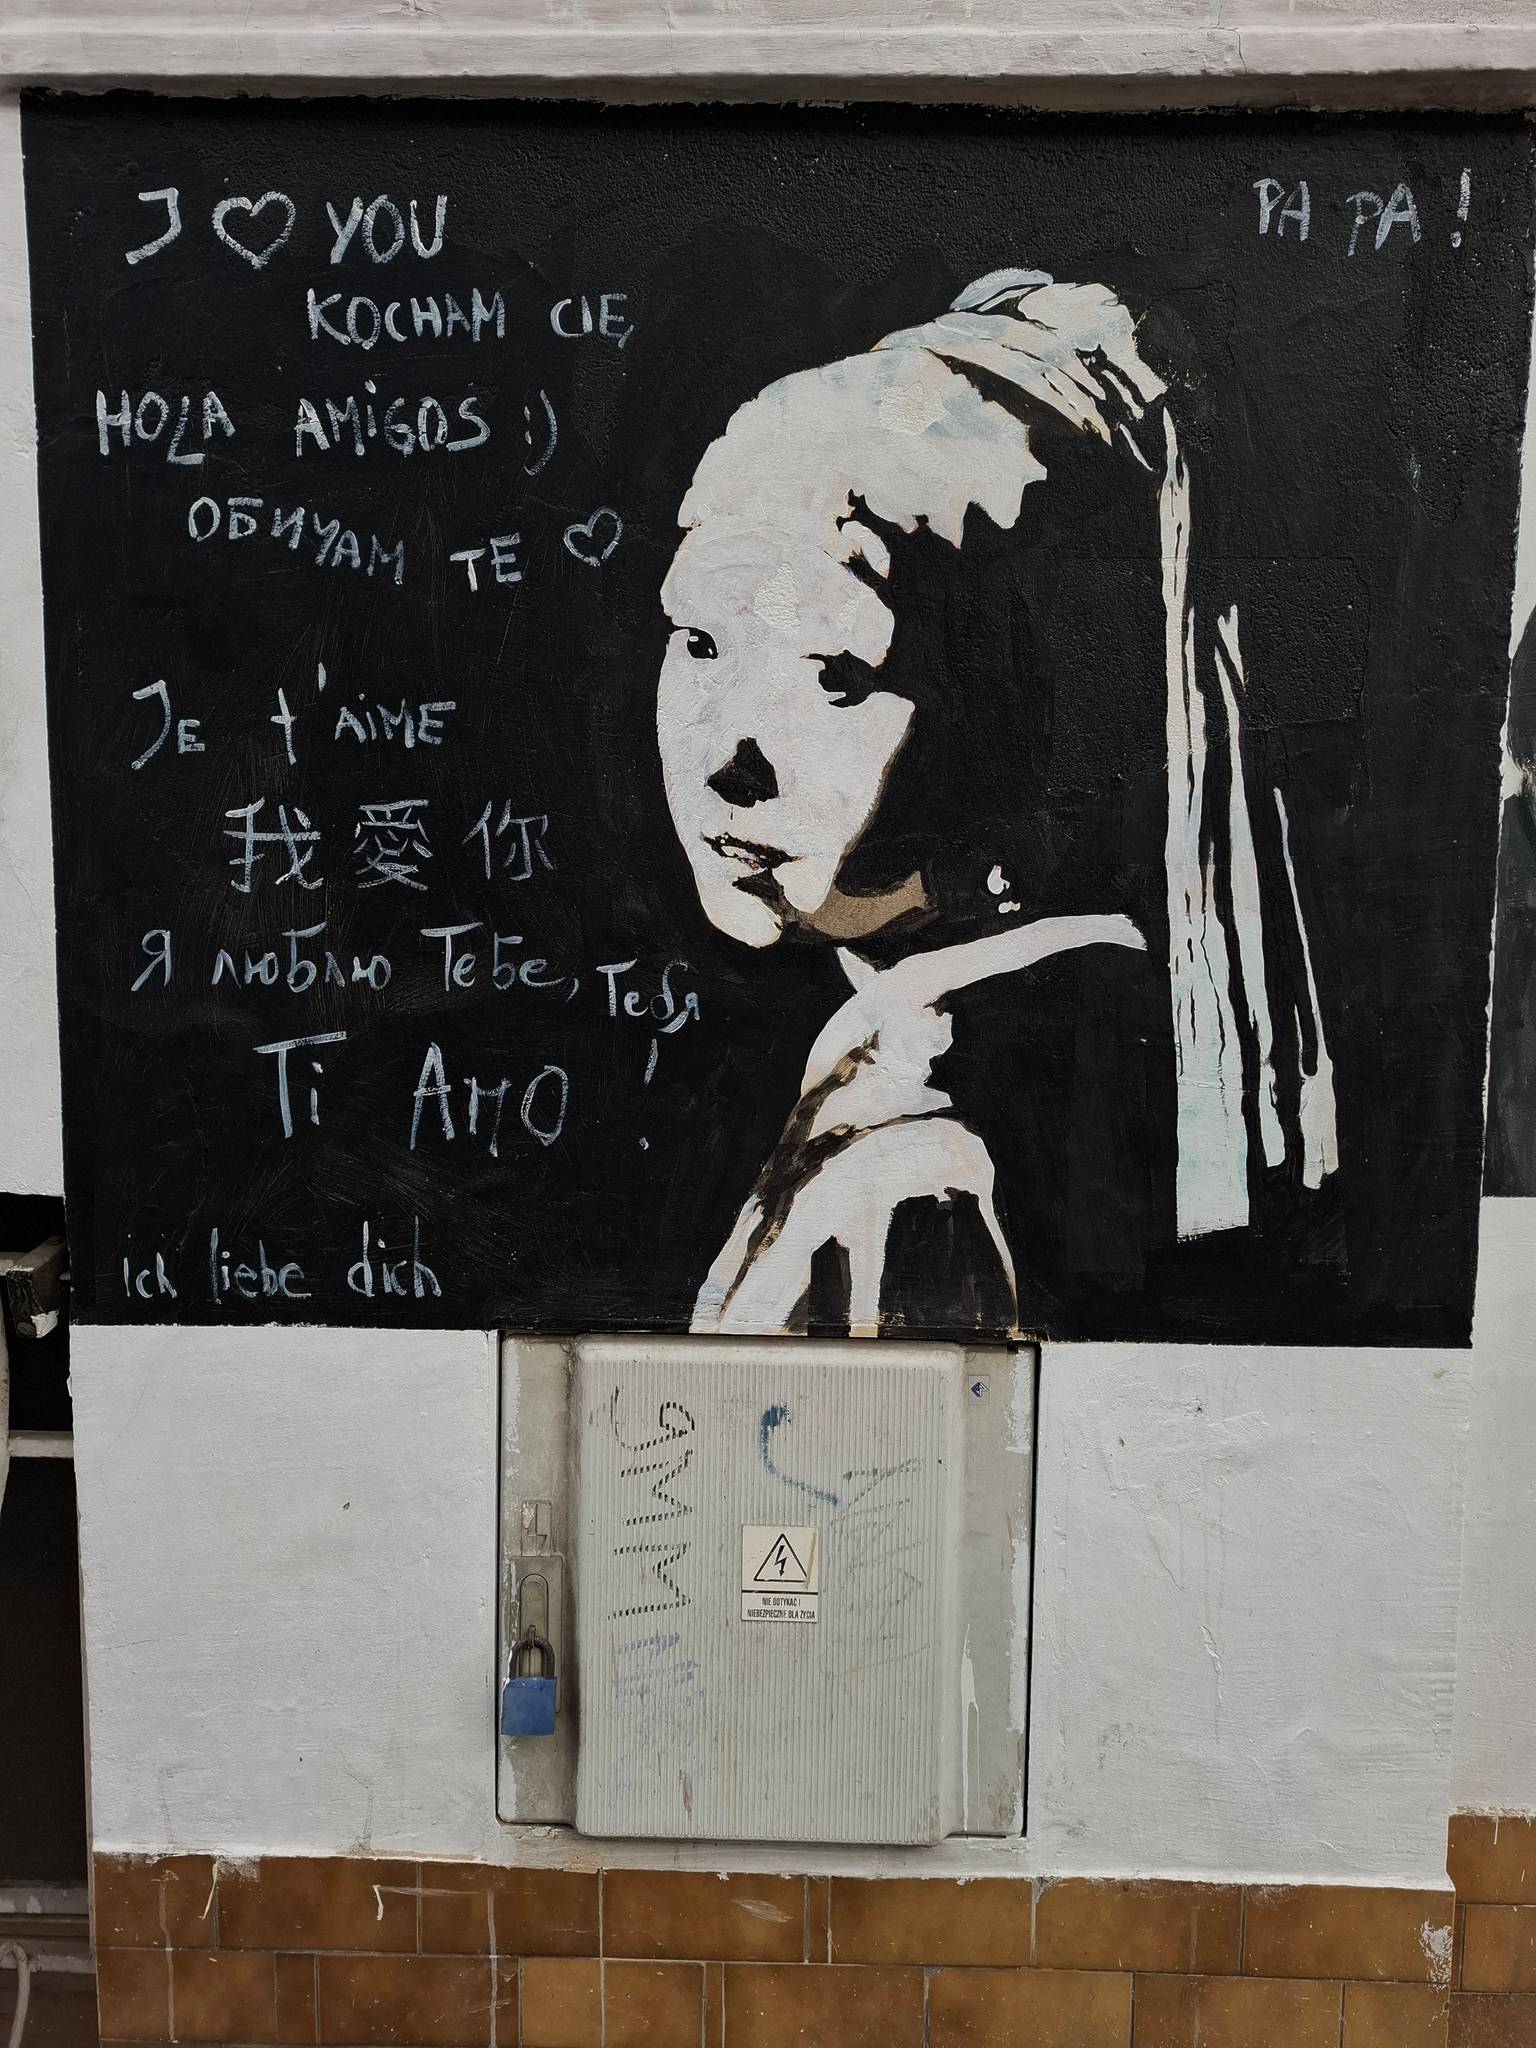 I ♡ YOU
PA PA !
KOCHAM CIĘ
HOLA AMiGOS :)
ОБИЧАМ ТЕ ♡
JE t'AiME
我愛你
Я люблю Тебе, Тебя
Ti AMO !
ich liebe dich
NIE DOTYKAĆ !
NIEBEZPIECZNE DLA ŻYCIA